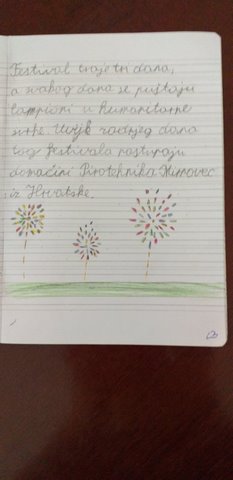 Festival traje tri dana,
a svakog dana se puštaju
lampioni u humanitarne
svrhe. Uvijk zadnjeg dana
tog festivala nastupaju
domaćini Pirotehnika Mirnovec
iz Hrvatske.